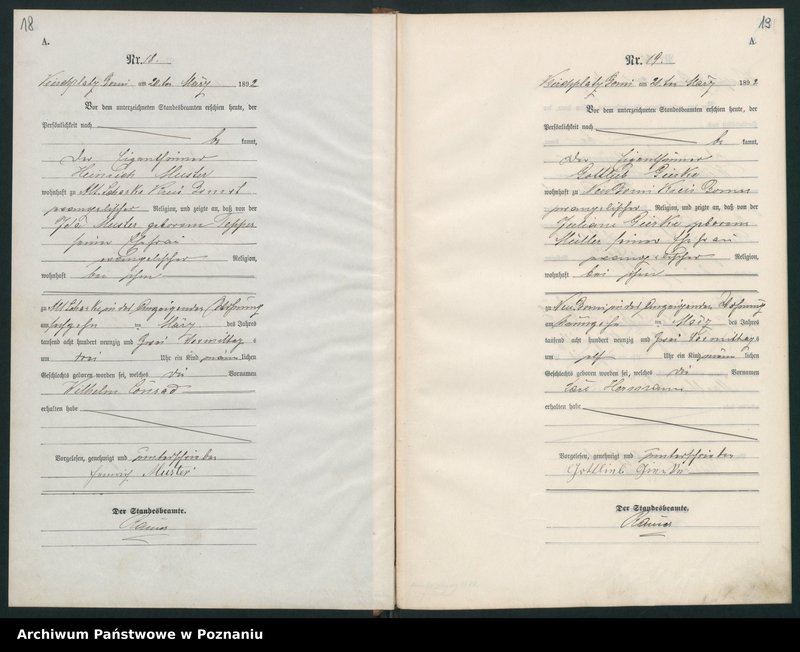 18
A.
Nr. 18.
Kirchplatz Bomst am 20ten März 1892
Vor dem unterzeichneten Standesbeamten erschien heute, der
Persönlichkeit nach
be kannt,
der Eigenthümer
Heinrich Muster
wohnhaft zu Alt Scharke Kreis Bomst
evangelischer Religion, und zeigte an, daß von der
Muster geborenen Tepper
seiner Ehefrau
evangelischer Religion,
wohnhaft bei ihm
zu Alt Scharke in des Anzeigenden Wohnung
am sechzehn ten März des Jahres
tausend acht hundert neunzig und zwei Vormittags
um drei Uhr ein Kind männ lichen
Geschlechts geboren worden sei, welches die Vornamen
Wilhelm Conrad
erhalten habe
Vorgelesen, genehmigt und unterschrieben
Heinrich Muster
Der Standesbeamte.
19
A.
Nr. 19.
am 20ten März 1892
Vor dem unterzeichneten Standesbeamten erschien heute, der
Persönlichkeit nach
be kannt,
der Eigenthümer
Gottlieb
wohnhaft zu Kreis Bomst
evangelischer Religion, und zeigte an, daß von der
Juliane geborenen
Müller seiner Ehefrau
evangelischer Religion,
wohnhaft bei ihm
zu in des Anzeigenden Wohnung
am März des Jahres
tausend acht hundert neunzig und zwei Vormittags
um elf Uhr ein Kind männ lichen
Geschlechts geboren worden sei, welches die Vornamen
Hermann
erhalten habe
Vorgelesen, genehmigt und unterschrieben
Gottlieb
Der Standesbeamte.
Archiwum Państwowe w Poznaniu